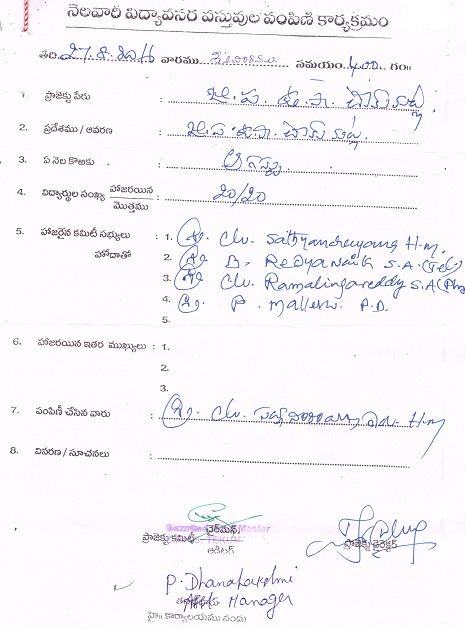 నెలవారీ విద్యావసర వస్తువుల పంపిణి కార్యక్రమం
తేది 27.8.2016 వారము శనివారము సమయం 4.00 గం॥
1. ప్రాజెక్టు పేరు : జి.ప.ఉ.పా.
2. ప్రదేశము / ఆవరణ : జి.ప.ఉ.పా.
3. ఏ నెల కొఱకు : ఆగష్టు
4. విద్యార్థుల సంఖ్య హాజరయిన / మొత్తము : 20/20
5. హాజరైన కమిటీ సభ్యులు : 1. శ్రీ. Ch. Sathyanarayana H.M.
హోదాతో 2. శ్రీ B. Redya Naik S.A.(Tel)
3. శ్రీ Ch. Ramalingareddy S.A (Phy
4. శ్రీ. P. Mallesu P.D.
5.
6. హాజరయిన ఇతర ముఖ్యులు : 1.
2.
3.
7. పంపిణీ చేసిన వారు : శ్రీ. Ch. సత్యనారాయణ H-M
8. వివరణ / సూచనలు :
చైర్‌మన్,
ప్రాజెక్టు కమిటీ
ఆడిటర్
ప్రాజెక్టు డైరెక్టర్
P. Dhanalakshmi
Manager
హై॥ కార్యాలయము నందు